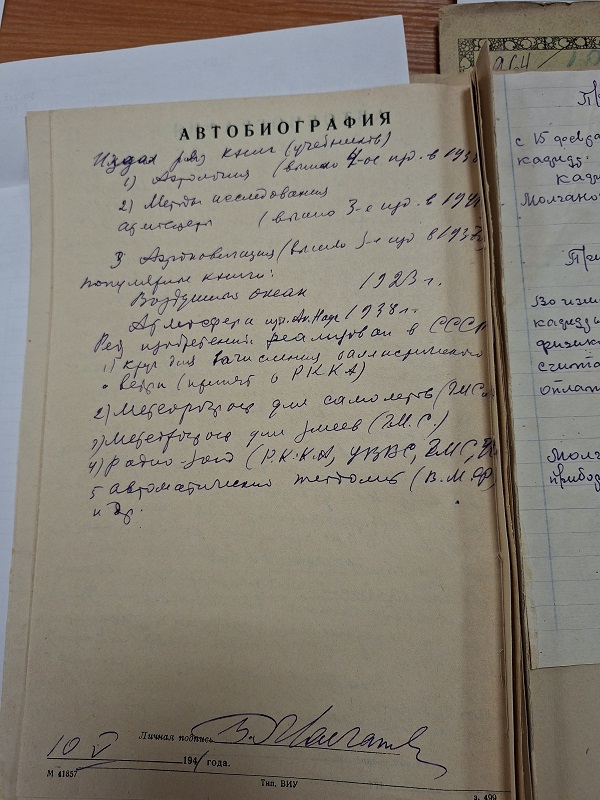 АВТОБИОГРАФИЯ
Издал ряд книг (учебников)
1) Аэрология (вышло 4-ое изд. в 1938
2) Методы исследования
атмосферы (вышло 3-е изд. в 194
3) Аэронавигация (вышло изд в 193
популярные книги:
Воздушный океан 1923 г.
Атмосфера изд. Ак. Наук 1938 г.
Ряд изобретений реализован в СССР
1) круг для вычисления баллистического
ветра (принят в РККА)
2) Метеорограф для самолетов (ГМС
3) Метеорограф для змеев (Г.М.С.)
4) Радио-зонд (Р.К.К.А, УВВС, ГМС,
5 автоматический (В.М.Ф)
и др.
Личная подпись В. Молчанов
10 V 1941 года.
М 41857
Тип. ВИУ
з. 499
964/
с 15 февра
кафедр
Молчано
Во изм
кафедры
физик
счита
оплат
Молч
прибор